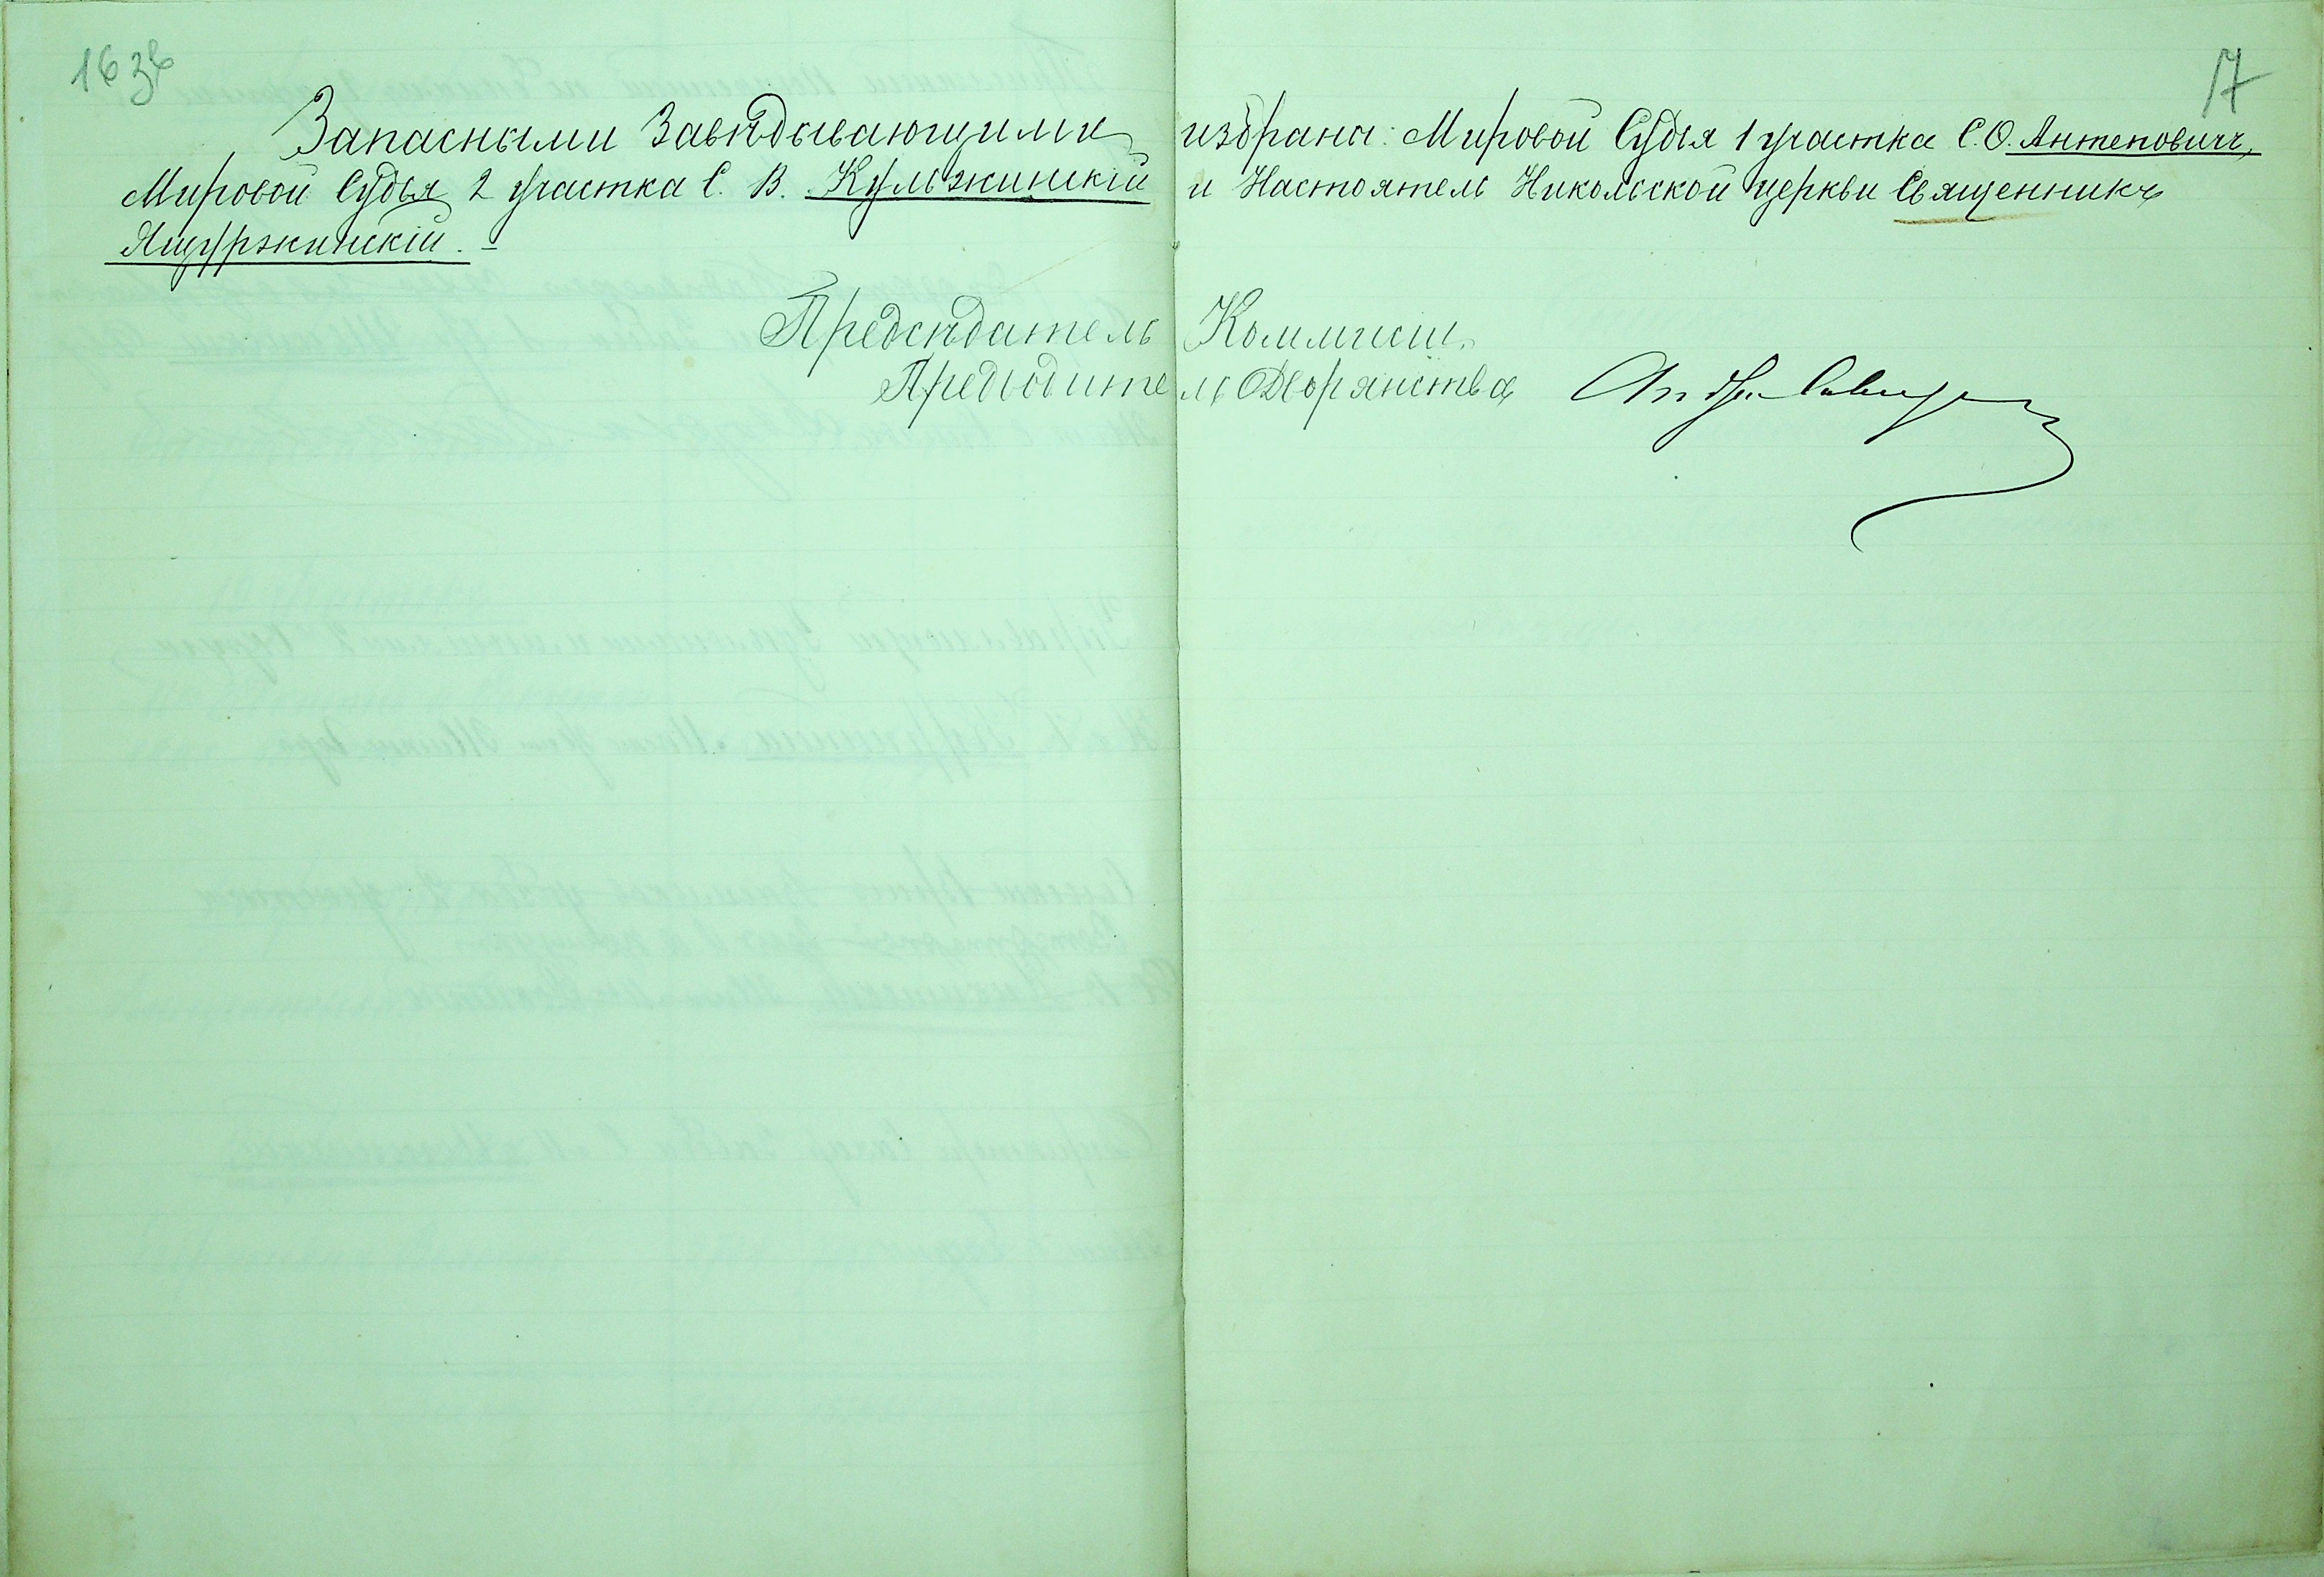 16 зв
17
Запасными Завѣдывающими избраны: Мировой Судья 1 участка С. О. Антепович,
Мировой Судья 2 участка С. В. Кульжинскій и Настоятель Никольской церкви Священникъ
Ящуржинскій. –
Предсѣдатель Коммисіи,
Предводитель Дворянства